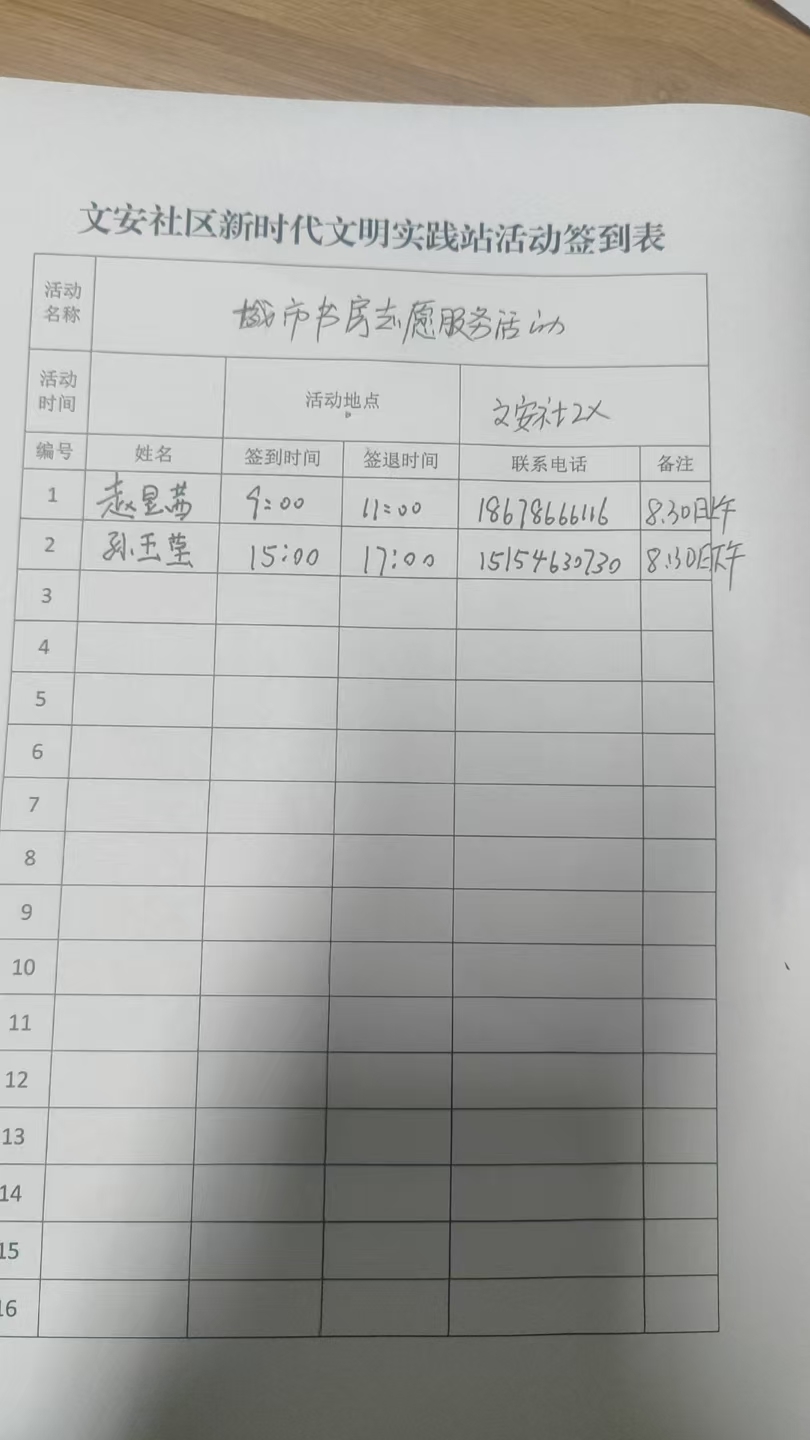 文安社区新时代文明实践站活动签到表
活动名称 城市书房志愿服务活动
活动时间 活动地点 文安社区
编号 姓名 签到时间 签退时间 联系电话 备注
1 赵昱茜 9:00 11:00 18678666116 8.30日上午
2 孙玉莹 15:00 17:00 15154630730 8.30日下午
3
4
5
6
7
8
9
10
11
12
13
14
15
16